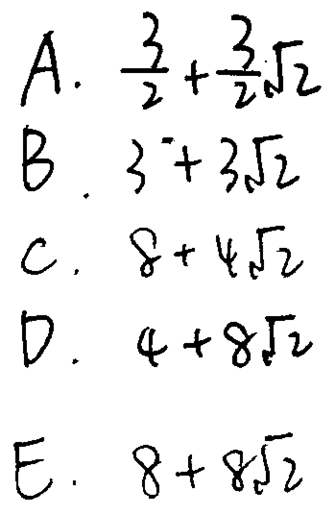 A. 3/2 + 3/2√2
B. 3 + 3√2
C. 8 + 4√2
D. 4 + 8√2
E. 8 + 8√2